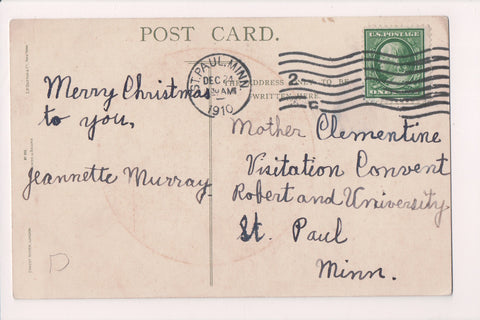 POST CARD.
ST. PAUL, MINN.
DEC 24
30 AM
1910
2
U.S. POSTAGE
THE ADDRESS ONLY TO BE
WRITTEN HERE
Merry Christmas
to you,
Jeannette Murray.
Mother Clementine
Visitation Convent
Robert and University
St. Paul
Minn.
D